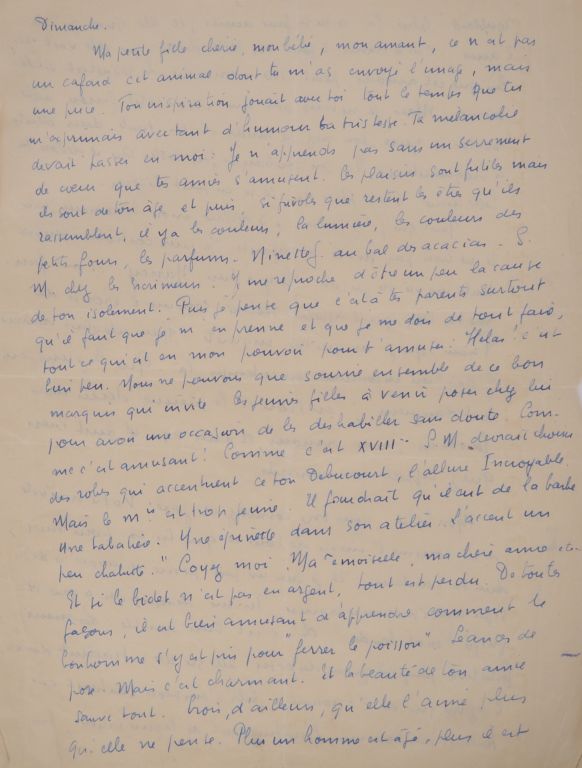 Dimanche.
Ma petite fille chérie, mon bébé, mon amant, ce n'est pas
un cafard cet animal dont tu m'as envoyé l'image, mais
une puce. Ton inspiration jouait avec toi tout le temps que tu
m'exprimais avec tant d'humour ta tristesse. Ta mélancolie
devait passer en moi. Je n'apprends pas sans un serrement
de cœur que tes amies s'amusent. Les plaisirs sont futiles mais
ils sont de ton âge et puis, si frivoles que restent les êtres qu'ils
rassemblent, il y a les couleurs, la lumière, les couleurs des
petits fours, les parfums. au bal des acacias. S.
M. chez les . Je me reproche d'être un peu la cause
de ton isolement. Puis je pense que c'est à tes parents surtout
qu'il faut que je m'en prenne et que je me dois de tout faire,
tout ce qui est en mon pouvoir pour t'amuser. Hélas ! c'est
bien peu. Nous ne pouvons que sourire ensemble de ce bon
marquis qui invite les jeunes filles à venir poser chez lui
pour avoir une occasion de les déshabiller sans doute. Com-
me c'est amusant ! Comme c'est XVIII. S. M. devrait choisir
des robes qui accentuent ce ton Debucourt, l'allure Incroyable.
Mais le mis est trop jeune. Il faudrait qu'il eut de la barbe
Une tabatière. Une épinette dans son atelier. L'accent un
peu . "Coyez moi Ma'emoiselle, ma chère amie etc.
Et si le bidet n'est pas en argent, tout est perdu. De toutes
façons, il est bien amusant d'apprendre comment le
bonhomme s'y est pris pour "ferrer le poisson". Séances de
pose. Mais c'est charmant. Et la beauté de ton amie
sauve tout. Crois, d'ailleurs, qu'elle l'a plus
qu'elle ne pense. Plus un homme est âgé, plus il est